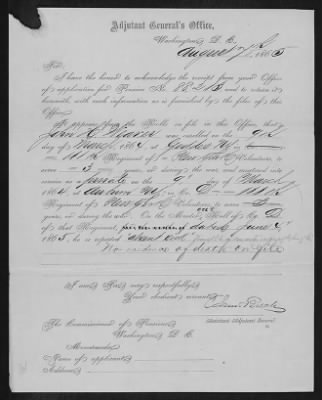 Adjutant General's Office,
Washington, D. C.,
August 7th, 1865
Sir:
I have the honor to acknowledge the receipt from your Office
of application for Pension No. 88,213 and to return it
herewith, with such information as is furnished by the files of this
Office.
It appears from the Rolls on file in this Office, that
John H. was enrolled on the 9th
day of March, 1864, at NY, in Co.
111th Regiment of New York Volunteers, to serve
3 years, or during the war, and mustered into
service as a private on the 9th day of March,
1864, at Auburn NY, in Co. 111th
Regiment of New York Volunteers, to serve 3
years, or during the war. On the Muster out Roll of Co. D
of that Regiment, dated June 4th,
1865, he is reported "absent sick"
No evidence of death on file
I am, Sir, very respectfully,
Your obedient servant,
Assistant Adjutant General
The Commissioner of Pensions,
Washington, D. C.
Memoranda:
Name of applicant,
Address,